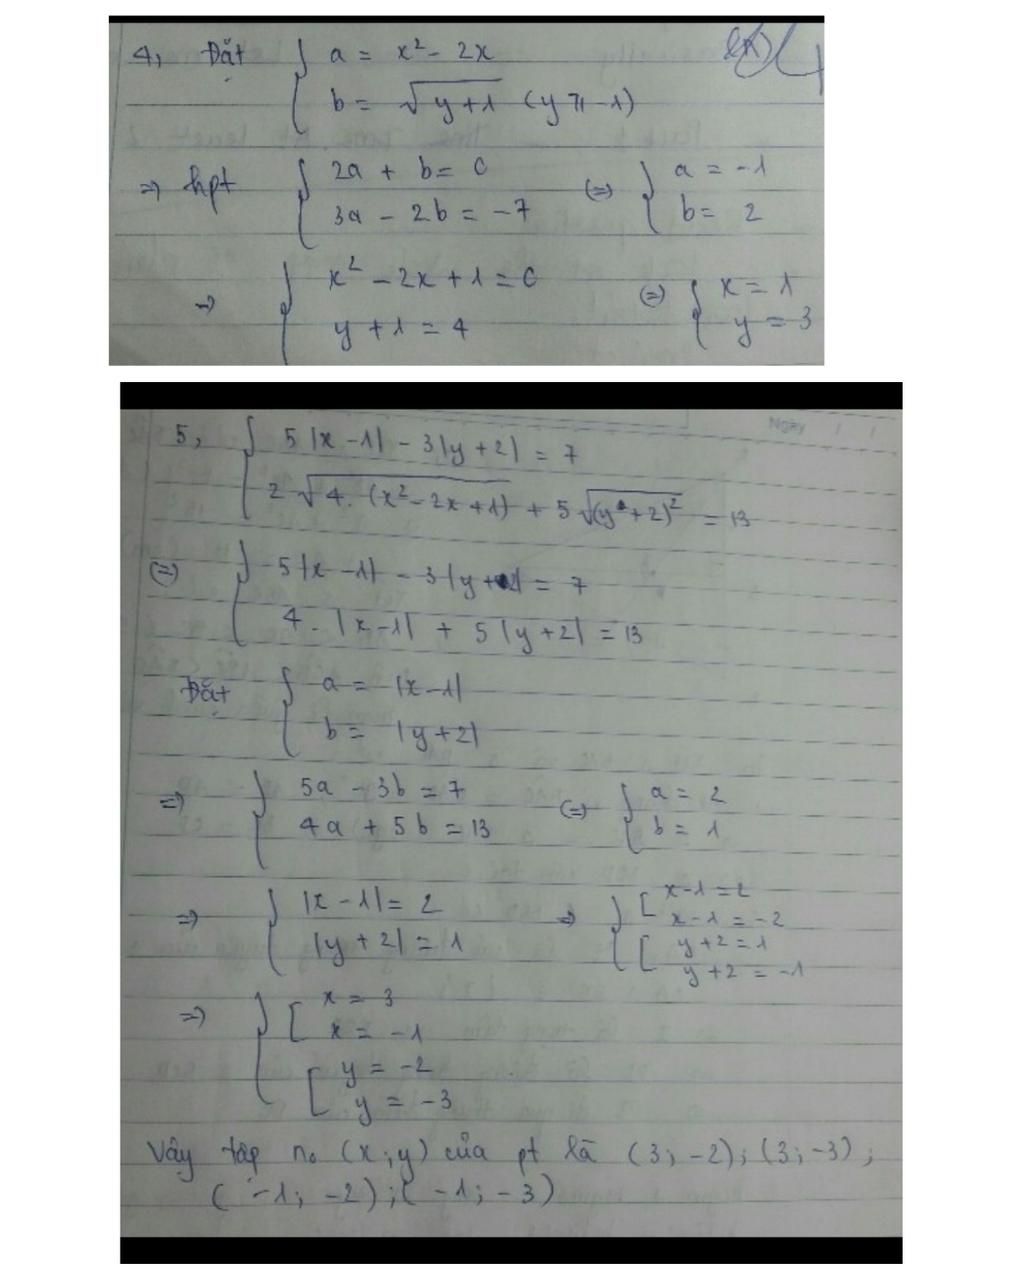 4, Đặt { a = x² - 2x
b = √(y+1) (y ≥ -1)
=> hpt { 2a + b = 0 (=) { a = -1
3a - 2b = -7 b = 2
=> { x² - 2x + 1 = 0 (=) { x = 1
y + 1 = 4 y = 3
Ngày
5, { 5|x-1| - 3|y+2| = 7
2√(4.(x²-2x+1)) + 5√((y+2)²) = 13
(=) { 5|x-1| - 3|y+2| = 7
4.|x-1| + 5|y+2| = 13
Đặt { a = |x-1|
b = |y+2|
=> { 5a - 3b = 7 (=) { a = 2
4a + 5b = 13 b = 1
=> { |x-1| = 2 => { [ x-1 = 2
x-1 = -2
|y+2| = 1 [ y+2 = 1
y+2 = -1
=> { [ x = 3
x = -1
[ y = -2
y = -3
Vậy tập n₀ (x;y) của pt là (3;-2); (3;-3);
(-1; -2); (-1; -3)